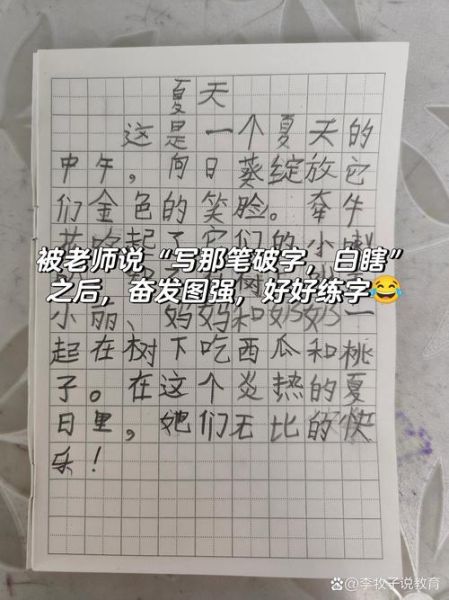 夏天
这是一个夏天的
中午，向日葵绽放它
们金色的笑脸。牵牛
花吹起了它们的小喇
被老师说“写那笔破字，白瞎”
之后，奋发图强，好好练字😂
小丽、妈妈和奶奶一
起在树下吃西瓜和桃
子。在这个炎热的夏
日里，她们无比的快
乐！
@李牧子说教育